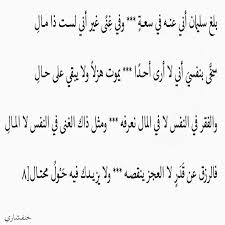 بلغ سليمان أني عنه في سعةٍ *** وفي غِنًى غير أني لست ذا مالِ
سخَّى بنفسي أني لا أرى أحدًا *** يموت هزلاً ولا يبقي على حالِ
والفقر في النفس لا في المال نعرفه *** ومثل ذاك الغنى في النفس لا المالِ
فالرزق عن قَدَرٍ لا العجز ينقصه *** ولا يزيدك فيه حَولُ محتال[٨
خنفشاري